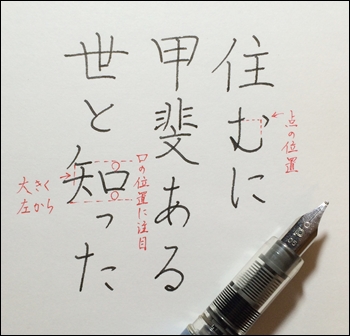 住むに
甲斐ある
世と知った
点の位置
口の位置に注目
大きく
左から